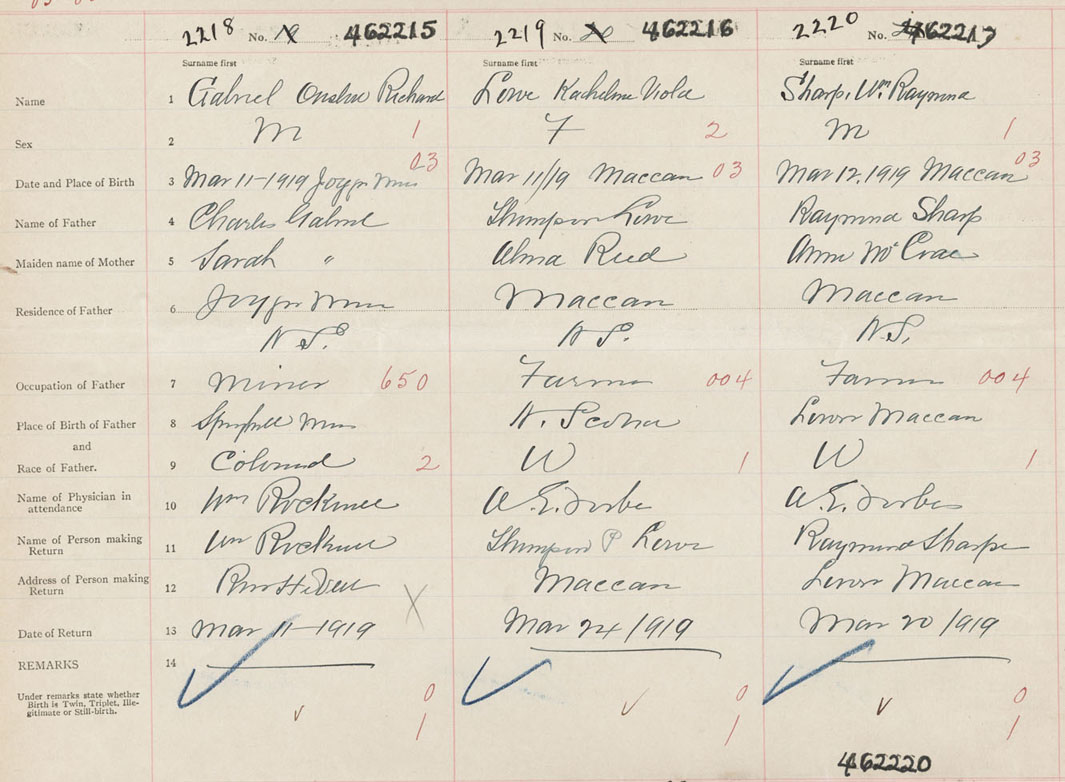 2218 No. 462215 2219 No. 462216 2220 No. 462217
Surname first Surname first Surname first
Name 1 Gabriel Richard Lowe Viola Sharp, Wm. Raymond
Sex 2 M 1 F 2 M 1
03 03
Date and Place of Birth 3 Mar 11-1919 Joggins Mines Mar 11/19 Maccan 03 Mar 12, 1919 Maccan
Name of Father 4 Charles Gabriel Lowe Raymond Sharp
Maiden name of Mother 5 Sarah " Alma Reed Annie McCrae
Residence of Father 6 Joggins Mines Maccan Maccan
N.S. N.S. N.S.
Occupation of Father 7 Miner 650 Farmer 004 Farmer 004
Place of Birth of Father 8 Mines N. Scotia Lower Maccan
and
Race of Father. 9 Colored 2 W 1 W 1
Name of Physician in
attendance 10 Wm Rockwell W. E. Forbes W. E. Forbes
Name of Person making
Return 11 Wm Rockwell P Lowe Raymond Sharpe
Address of Person making
Return 12 River Hebert X Maccan Lower Maccan
Date of Return 13 Mar 11-1919 Mar 24/1919 Mar 20/1919
REMARKS 14
Under remarks state whether
Birth is Twin, Triplet, Ille-
gitimate or Still-birth.
0 0 0
1 1 1
462220